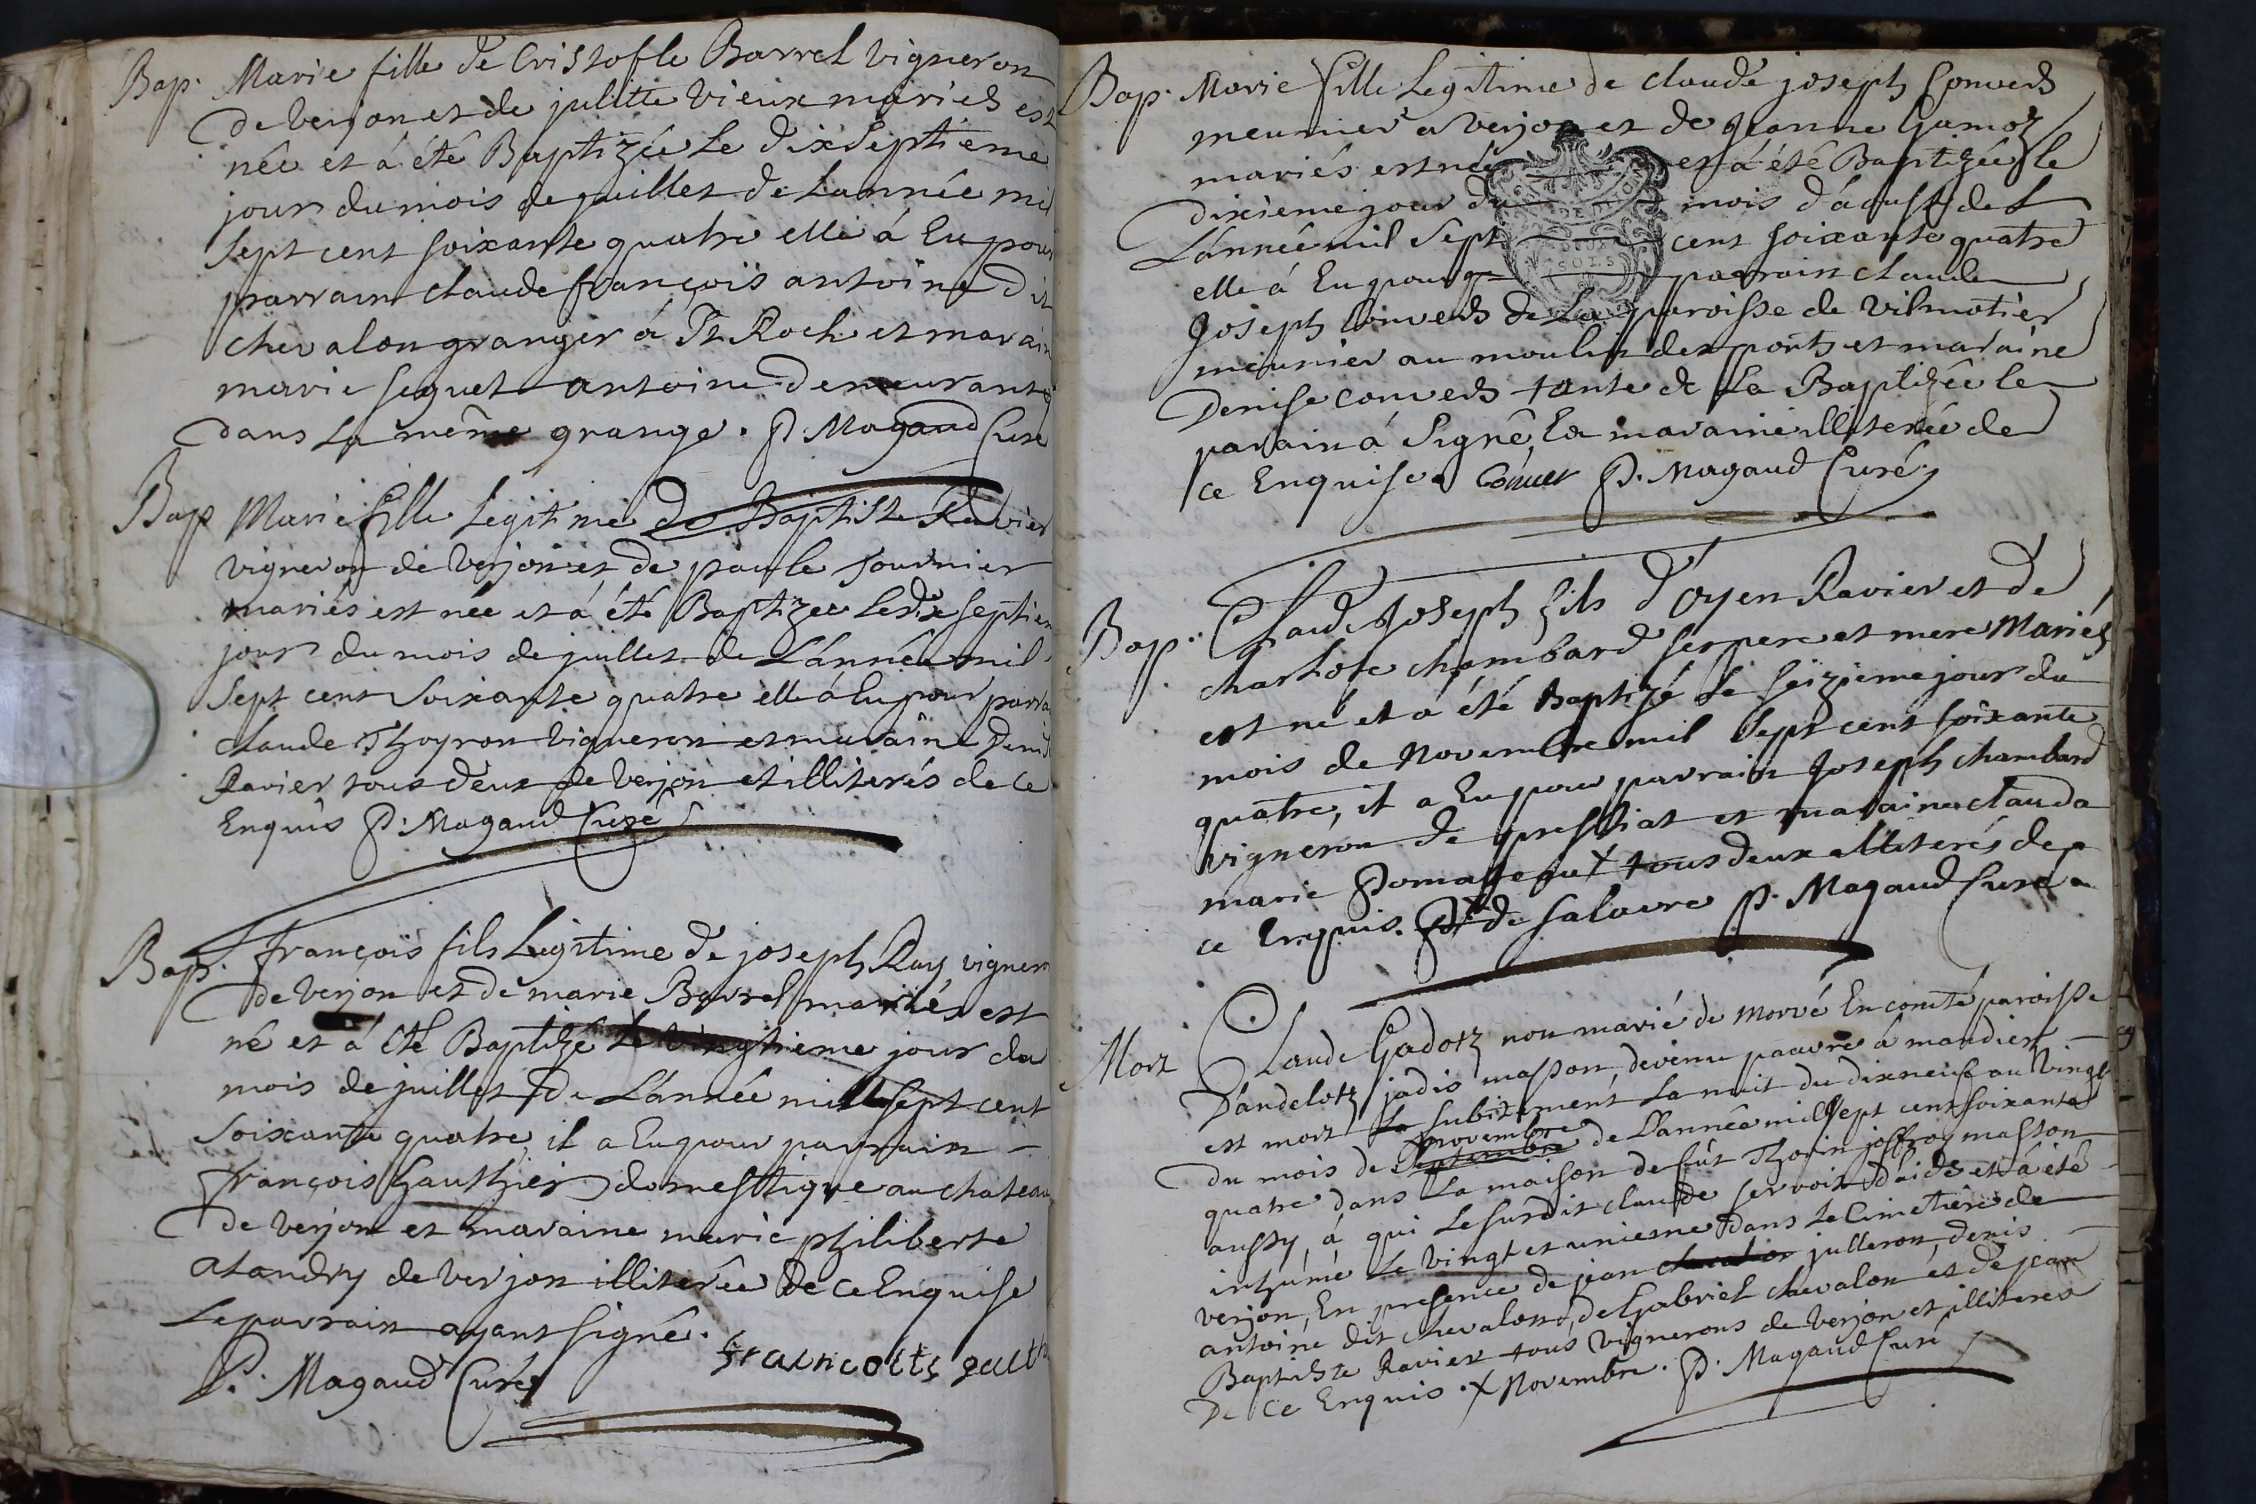 Bap. Marie fille de Cristofle Barrel vigneron
de verjon et de julitte vieux mariés est
née et á été Baptizée le dix septieme
jour du mois de juillet de L'année mil
sept cent soixante quatre elle á Eu pour
parrain claude françois antoine dit
chevalon granger á St Roch et marain
marie seguet antoine demeurants
dans La même grange. P. Magaud Curé
Bap Marie fille Legitime de Baptiste Ravier
vigneron de verjon et de paule fournier
mariés est née et á été Baptizée le dix septiem
jour du mois de juillet de L'année mil
sept cent soixante quatre elle á Eu pour parra
claude Thoyron vigneron et maraine Denis
Ravier tous deux de verjon et illiterés de ce
Enquis P. Magaud Curé
Bap. françois fils Legitime de joseph Ray vigneron
de verjon et de marie Barrel mariés est
né et á été Baptizé le vingtieme jour du
mois de juillet de L'année mil sept cent
soixante quatre, il a Eu pour parrain
françois Gauthier domestique au chateau
de verjon et maraine marie philiberte
alandry de verjon illiterée de ce Enquise
Le parrain ayant signé.
francoits gaulth
P. Magaud Curé
Bap. Marie fille Legitime de claude joseph Convers
meunier a verjon et de jeanne Gamoz
mariés est née et á été Baptizée le
dixieme jour du mois d'áoust de L
L'année mil sept cent soixante quatre
elle á Eu pour parrain claude
Joseph Convers de La paroisse de vilmotier
meunier au moulin des ponts et maraine
Denise convers tante de La Baptizée le
parain á signé, la maraine illiterée de
ce Enquise. Conver P. Magaud Curé
Bap. Claude Joseph fils d'oyen Ravier et de
charlote chambard ses pere et mere Mariés
est né et á été Baptizé le seizieme jour du
mois de novembre mil sept cent soixante
quatre, il a Eu pour parrain Joseph chambard
vigneron de pressiat et maraine clauda
marie Pomateaux tous deux illiterés de
ce Enquis. de salavre P. Magaud Curé
Mort Claude Gadotz non marié de morvé En comté paroisse
D'andelotz jadis masson, devenu pauvre á mandier
est mort subitement La nuit du dixneuf au vingt
novembre
du mois de septembre de L'année mil sept cent soixante
quatre dans La maison de fût Thorin joffroy masson
aussy, á qui Lesurdit claude servoit d'aide et á été
inhumé Le vingt et unieme dans Le Cimetiere de
verjon, En presence de jean chevalon julleron, denis
antoine dit chevalon, de Gabriel chevalon et de jean
Baptiste Ravier tous vignerons de verjon et illiterés
De ce Enquis. x Novembre. P. Magaud Curé